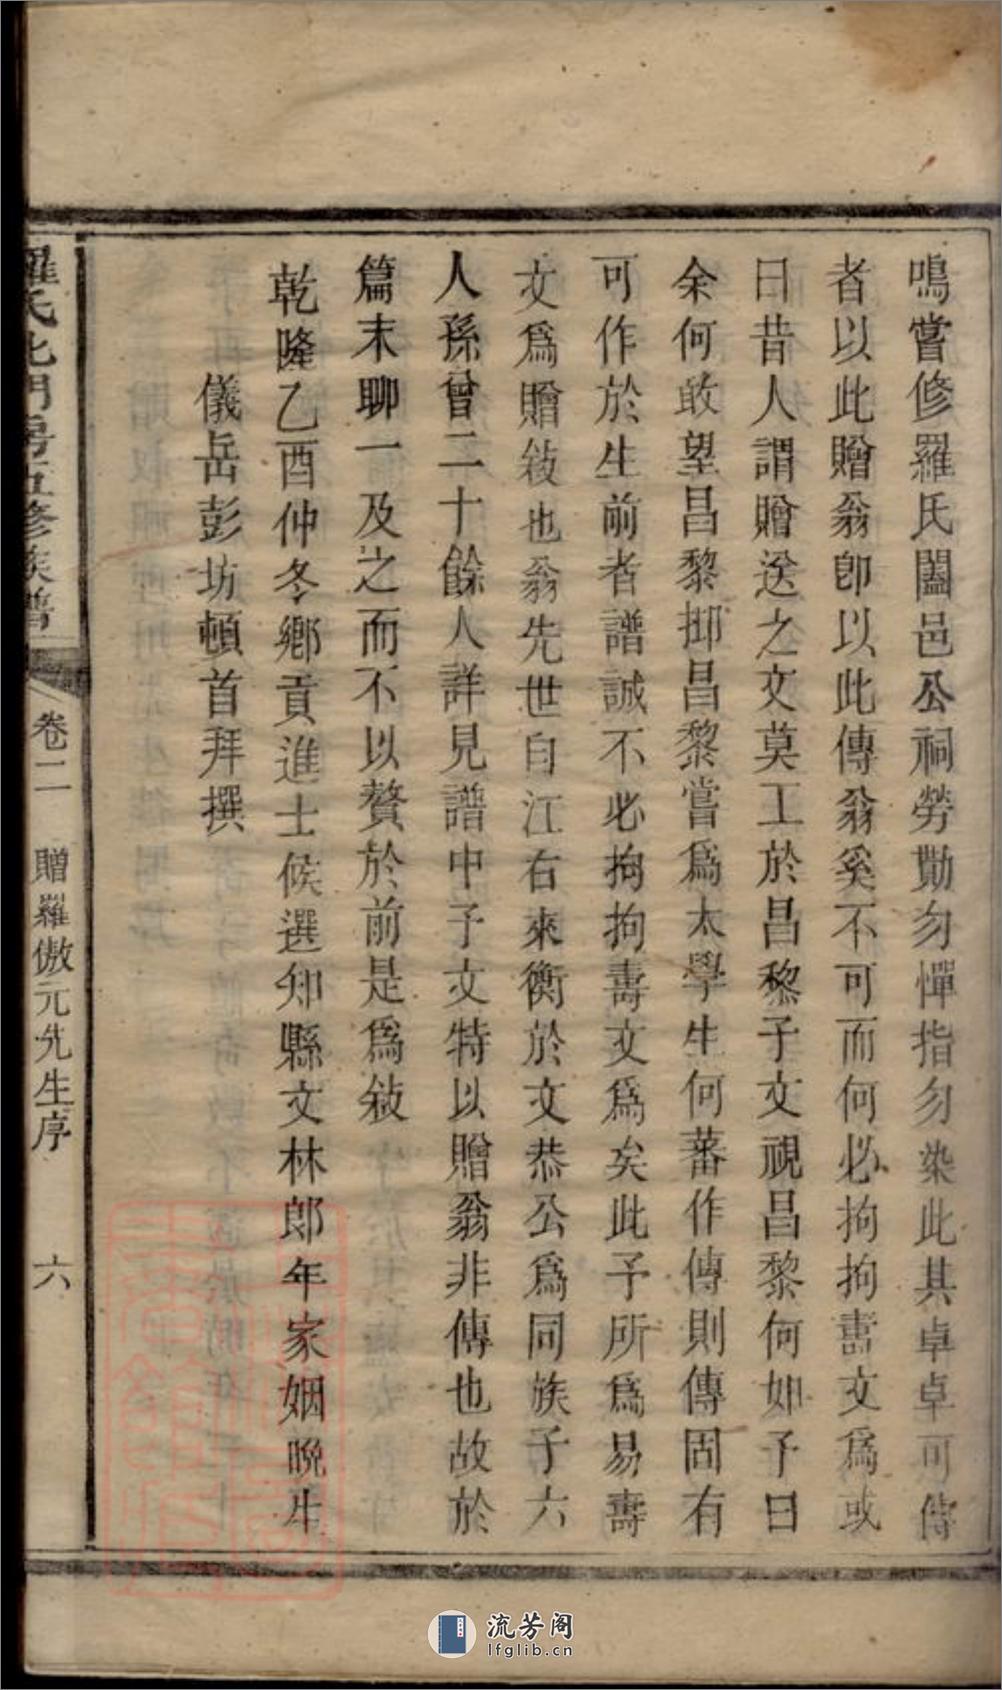 鳴嘗修羅氏闔邑公祠勞勩勿憚指勿染此其卓卓可傳
者以此贈翁卽以此傳翁奚不可而何必拘拘壽文爲或
曰昔人謂贈送之文莫工於昌黎子文視昌黎何如予曰
余何敢望昌黎抑昌黎嘗爲太學生何蕃作傳則傳固有
可作於生前者譜誠不必拘拘壽文爲矣此予所爲易壽
文爲贈敍也翁先世自江右來衡於文恭公爲同族子六
人孫曾二十餘人詳見譜中子文特以贈翁非傳也故於
篇末聊一及之而不以贅於前是爲敍
乾隆乙酉仲冬鄉貢進士候選知縣文林郞年家姻晚生
儀岳彭坊頓首拜撰
羅氏北門房五修族譜
卷二 贈羅傲元先生序 六
流芳阁
lfglib.cn